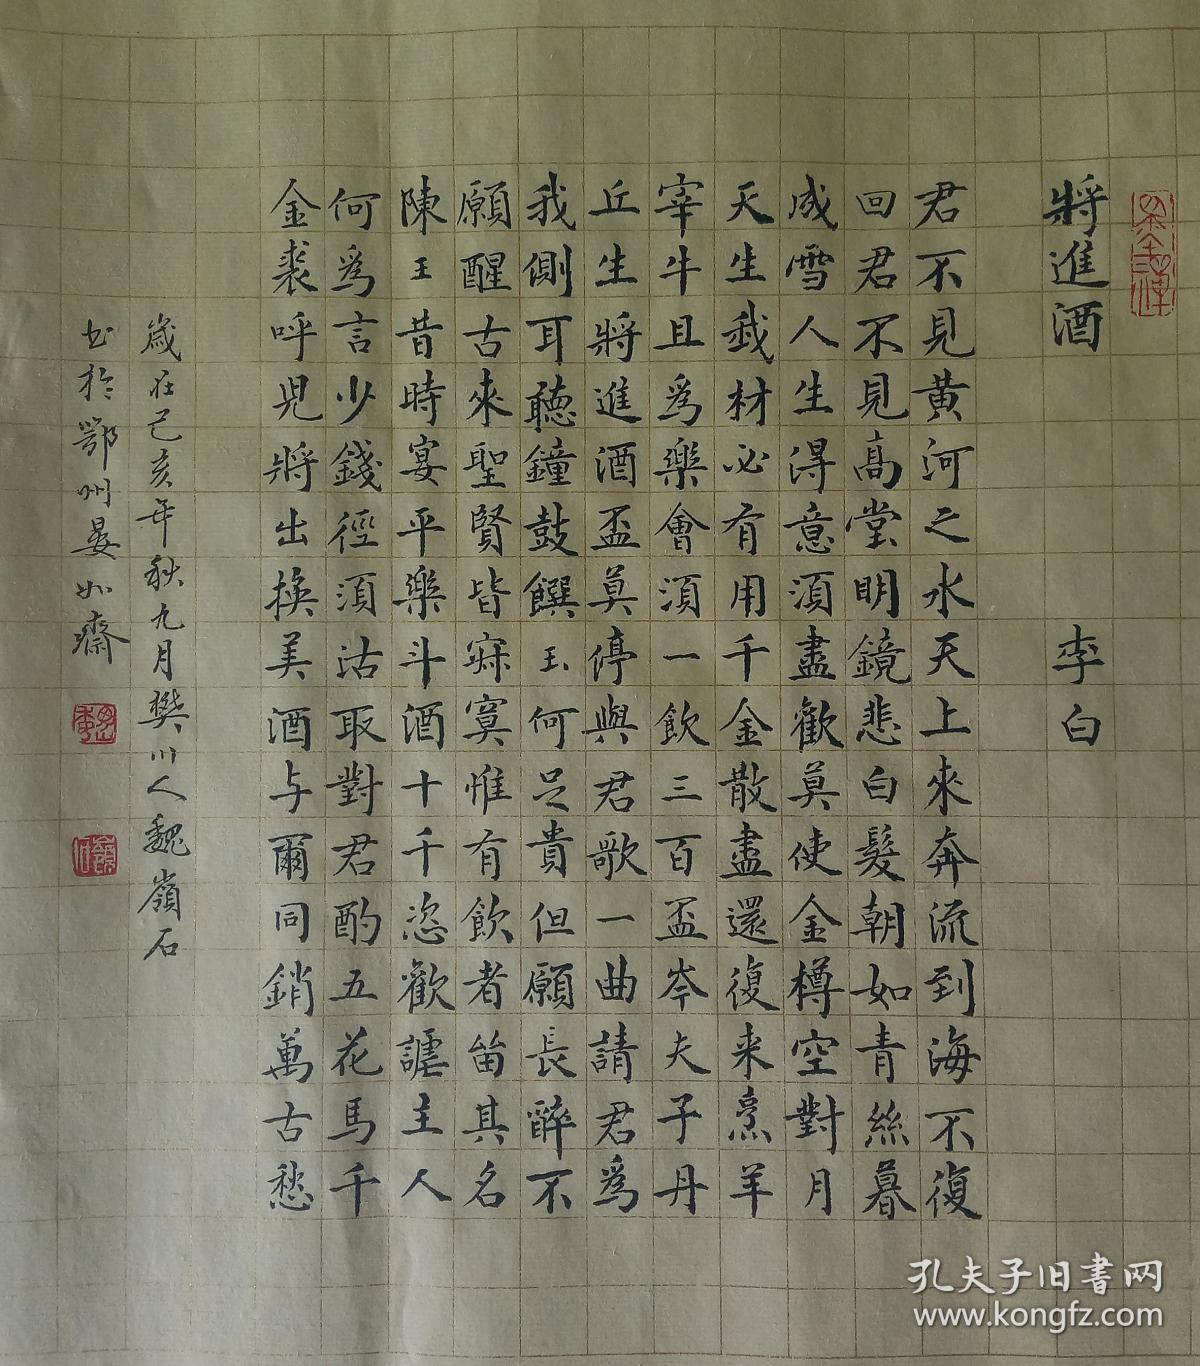 將進酒 李白
君不見黃河之水天上來奔流到海不復
回君不見高堂明鏡悲白髮朝如青絲暮
成雪人生得意須盡歡莫使金樽空對月
天生我材必有用千金散盡還復来烹羊
宰牛且為樂會須一飲三百盃岑夫子丹
丘生將進酒盃莫停與君歌一曲請君為
我側耳聽鐘鼓饌玉何足貴但願長醉不
願醒古來聖賢皆寂寞惟有飲者留其名
陳王昔時宴平樂斗酒十千恣歡謔主人
何為言少錢徑須沽取對君酌五花馬千
金裘呼兒將出換美酒与爾同銷萬古愁
歲在己亥年秋九月樊川人魏嶺石
書於鄂州晏如齋
孔夫子旧書网
www.kongfz.com